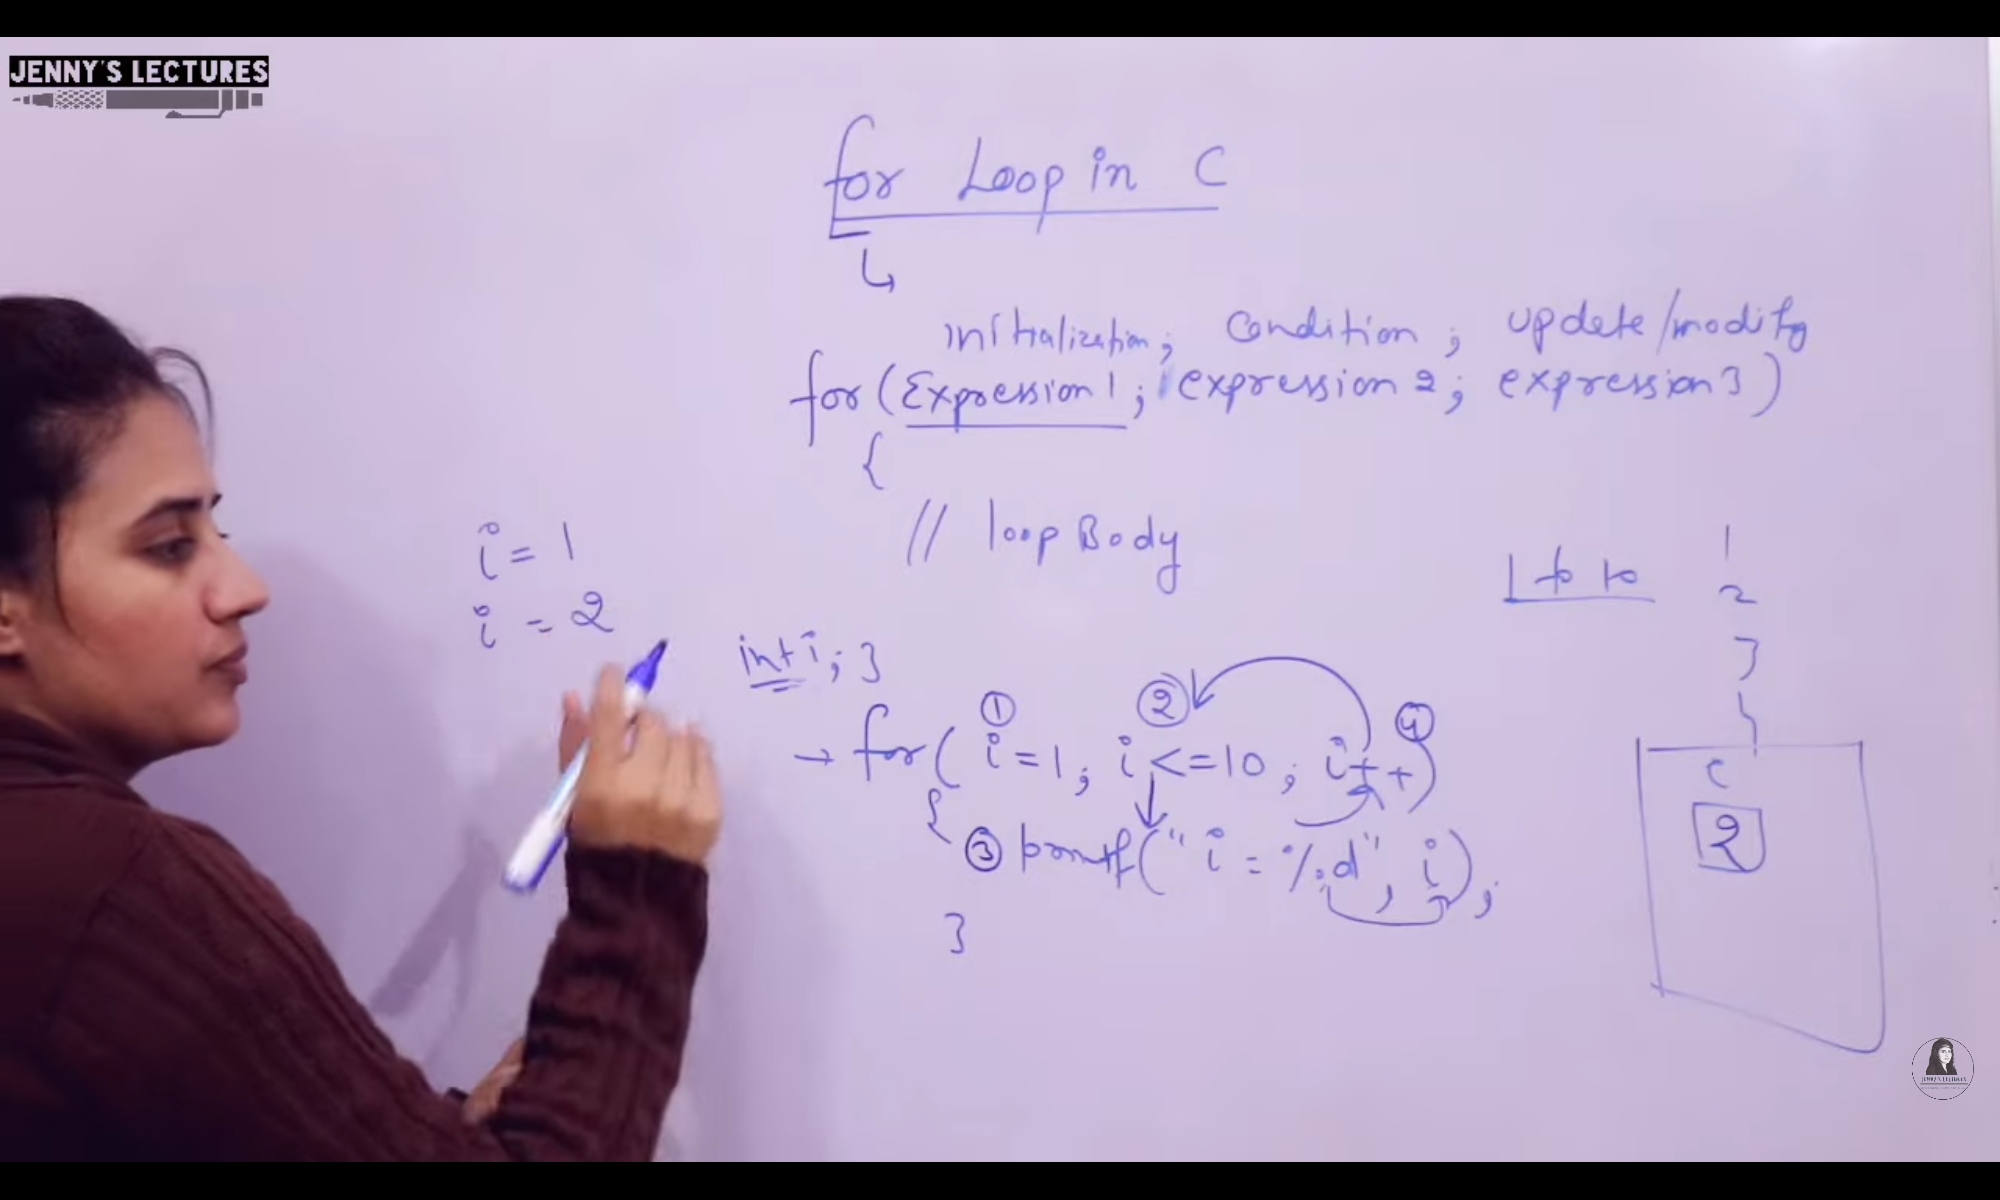 JENNY'S LECTURES
for Loop in C
initialization; Condition; update/modify
for(Expression1; expression2; expression3)
{
// loop Body
i = 1
i = 2
1 to 10
1
2
3
int i; }
① ② ④
→ for(i=1; i<=10; i++)
{
③ printf("i = %d", i);
}
i
2
JENNY'S LECTURES